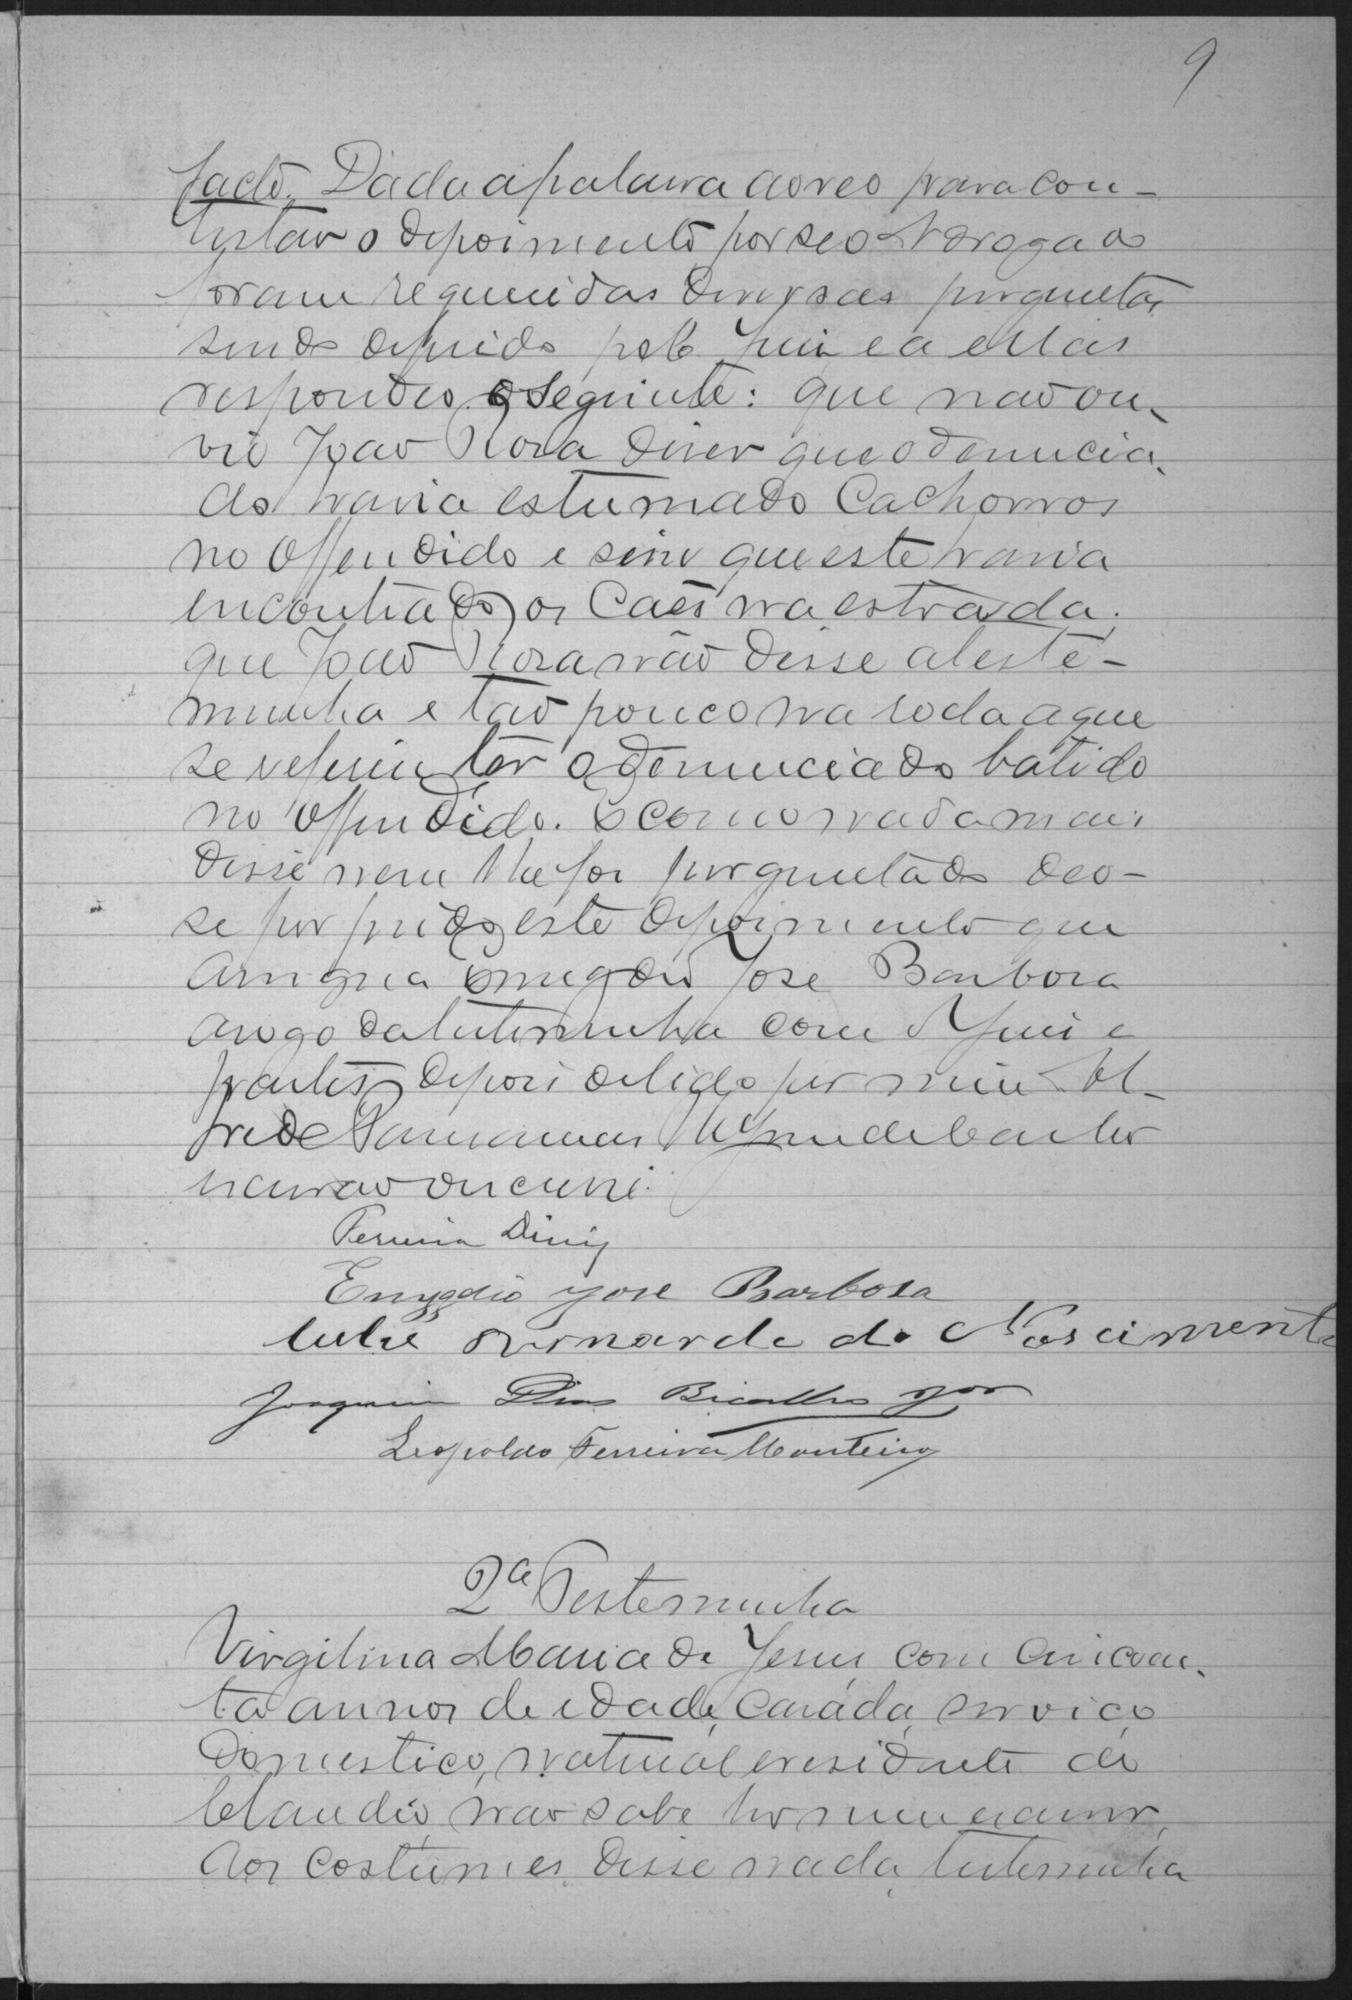 9
facto. Dada a palavra ao reo para con-
testar o depoimento por seo Advogado
foram requeridas diversas perguntas
sendo diferido pelo Juiz e a ellas
respondeo o seguinte: que não ou-
vio João Rosa diser que o denuncia-
do havia estumado Cachorros
no offendido e sim que este havia
encontrado os Cães na estrada;
que João Rosa não disse a teste-
munha e tão pouco na roda a que
se referiu ter o denunciado batido
no offendido. E como nada mais
disse nem lhe foi perguntado deo-
se por findo este depoimento que
assigna Emygdio José Barbosa
a rogo da testemunha com o Juiz e
partes depois de lido por mim Al-
fredo
não o escrevi.
Pereira Diniz
Emygdio José Barbosa
Bernarde do Nascimento
Joaquim Dias Bicalho Jor
Leopoldo Ferreira Monteiro
2ª Testemunha
Virgilina Maria de Jesus, com cincoen-
ta annos de idade, casada, serviço
domestico, natural e residente do
Claudio, não sabe ler nem escrever,
Aos costumes disse nada, testemunha